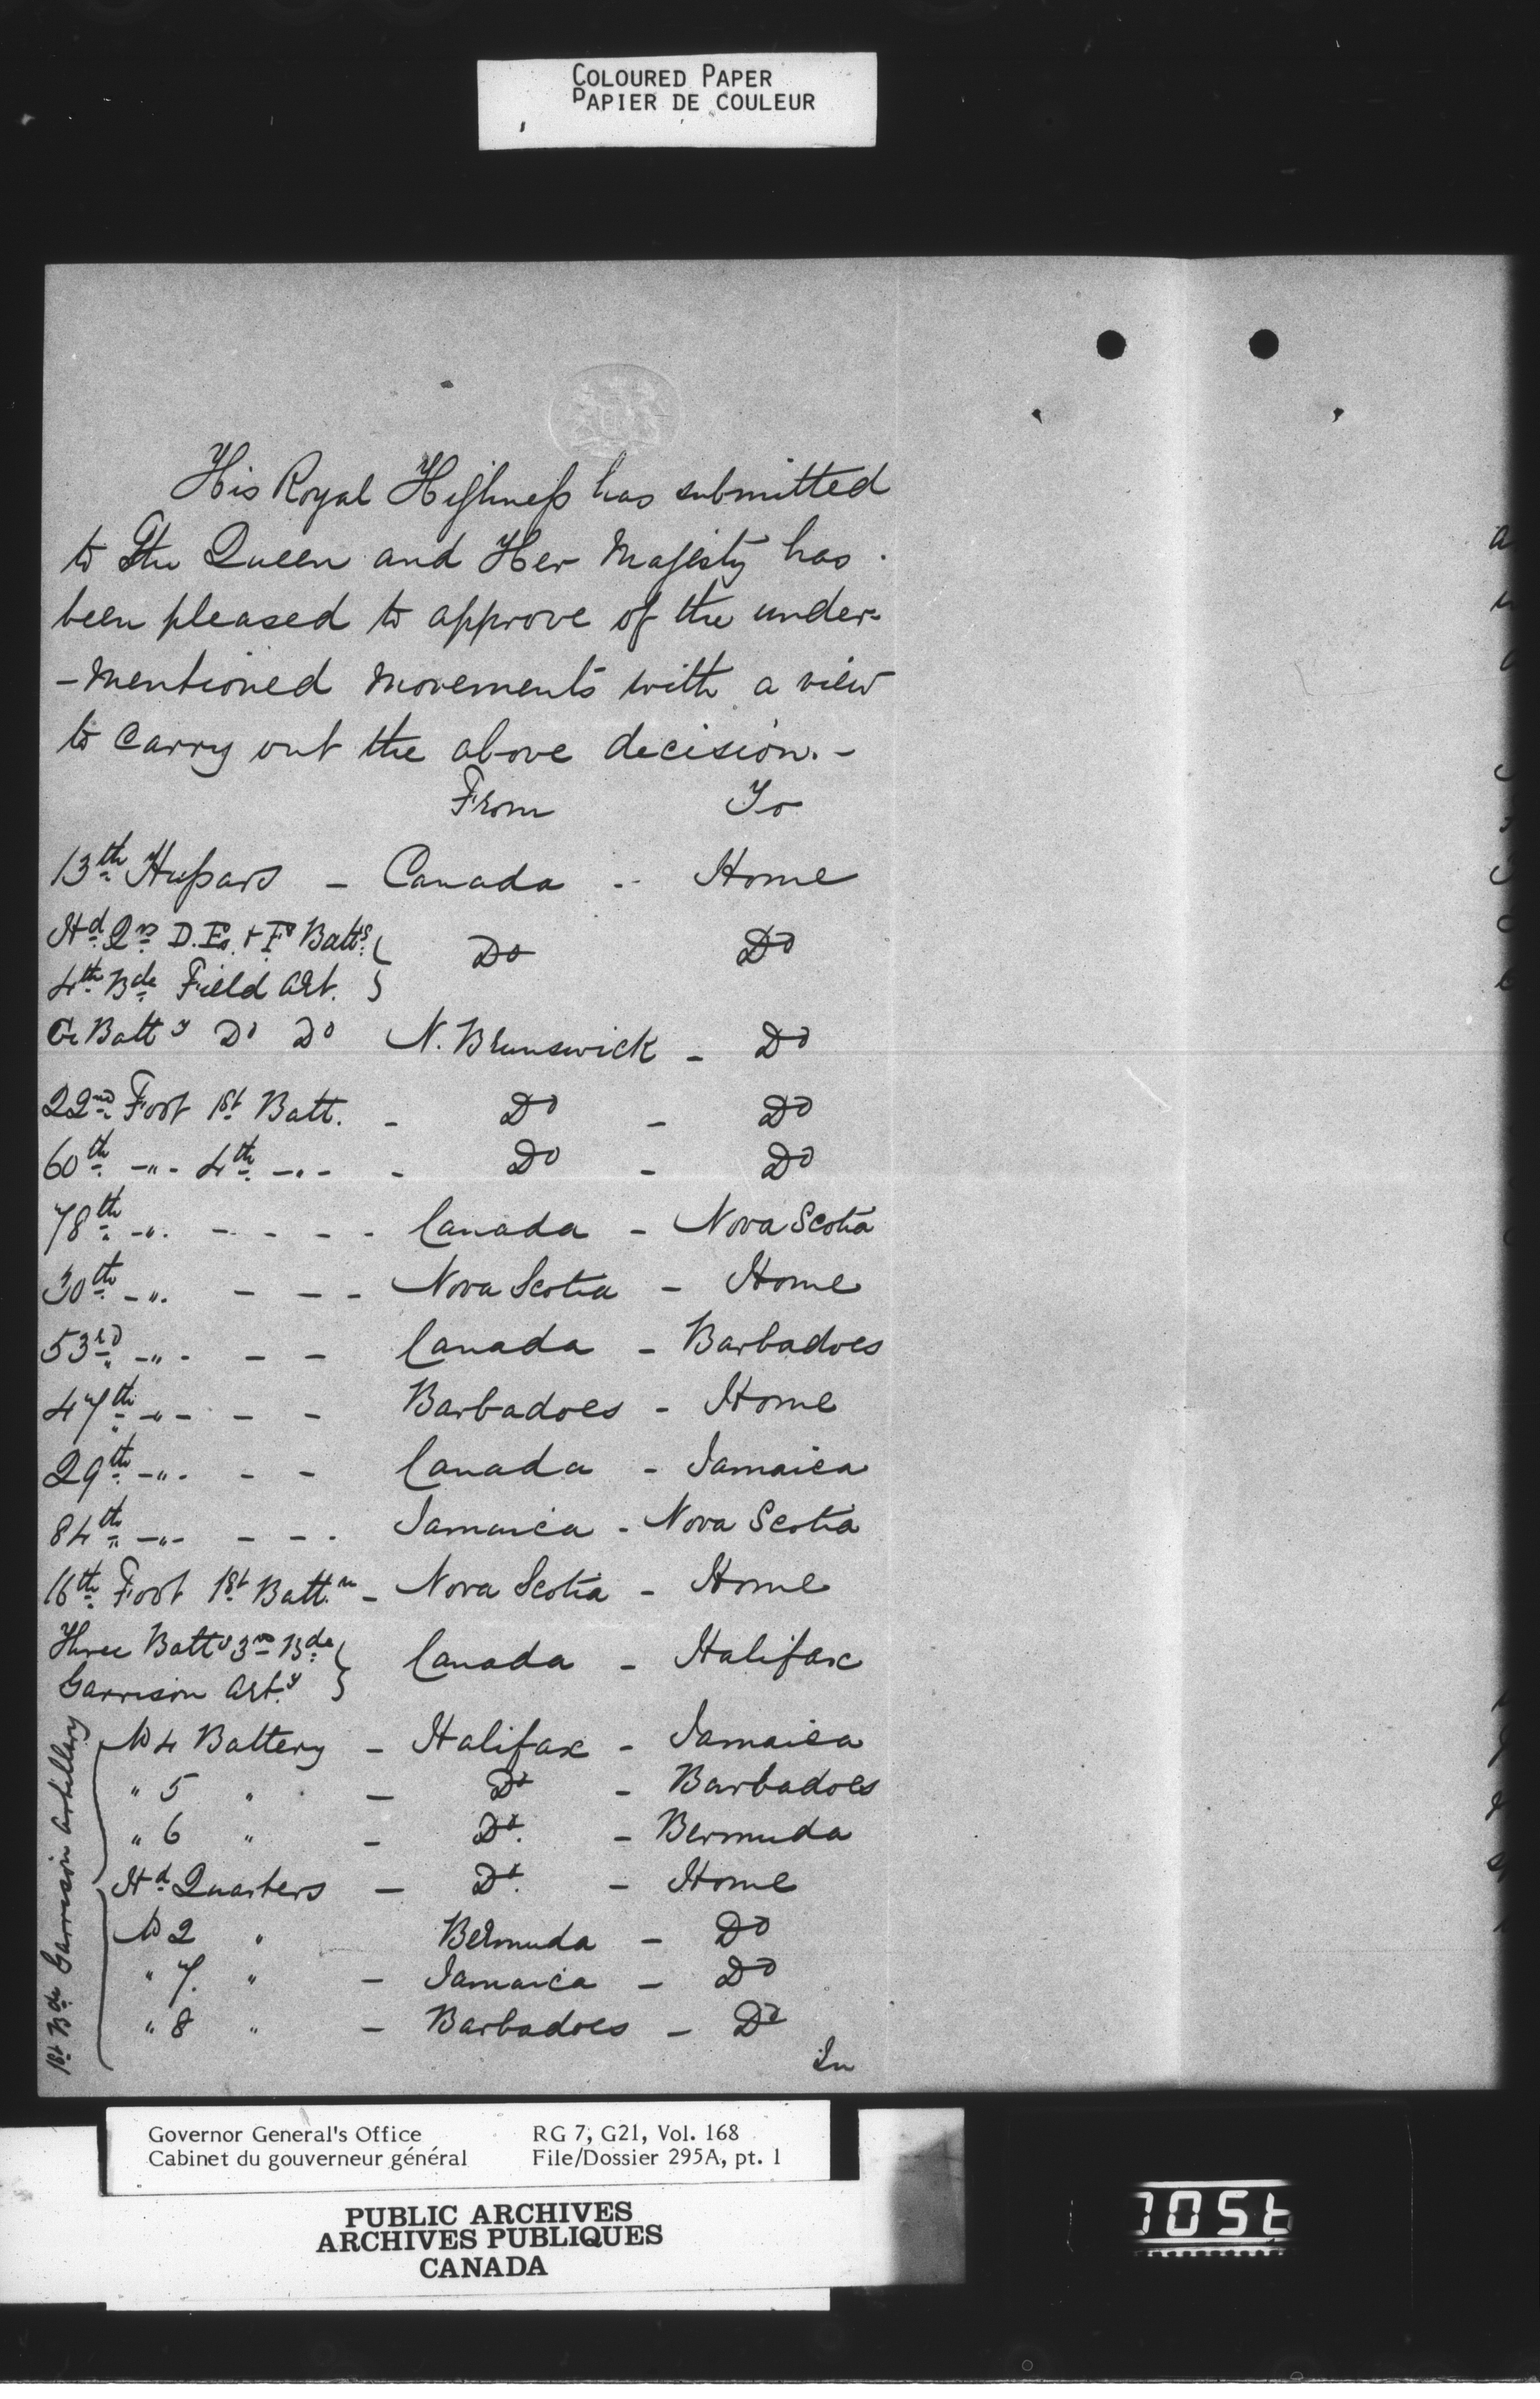 COLOURED PAPER
PAPIER DE COULEUR
His Royal Highness has submitted
to The Queen and Her Majesty has
been pleased to approve of the under-
-mentioned movements with a view
to carry out the above decision. -
From To
13th Hussars - Canada - Home
Hd Qrs D. E. & F Batts }
4th Bde Field Art. } Do Do
G Batty Do Do N. Brunswick - Do
22nd Foot 1st Batt. - Do - Do
60th -"- 4th -"- - Do - Do
78th -"- - - - - Canada - Nova Scotia
30th -"- - - - Nova Scotia - Home
53rd -"- - - Canada - Barbadoes
47th -"- - - Barbadoes - Home
29th -"- - - Canada - Jamaica
84th -"- - - - Jamaica - Nova Scotia
16th Foot 1st Battn - Nova Scotia - Home
Three Batts 3rd Bde }
Garrison Arty } Canada - Halifax
1st Bde Garrison Artillery
No 4 Battery - Halifax - Jamaica
" 5 " - Do - Barbadoes
" 6 " - Do - Bermuda
Hd Quarters - Do - Home
No 2 " Bermuda - Do
" 7 " - Jamaica - Do
" 8 " - Barbadoes - Do
In
Governor General's Office RG 7, G21, Vol. 168
Cabinet du gouverneur général File/Dossier 295A, pt. 1
PUBLIC ARCHIVES
ARCHIVES PUBLIQUES
CANADA